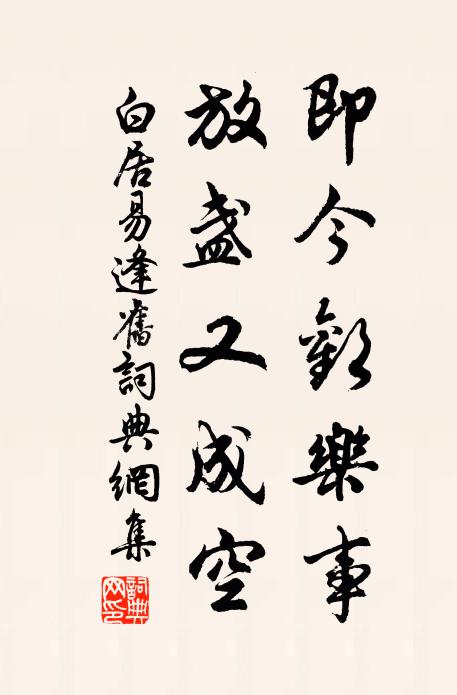 即今歡樂事
放盞又成空
白居易逢舊詞典網集
詞典
网印